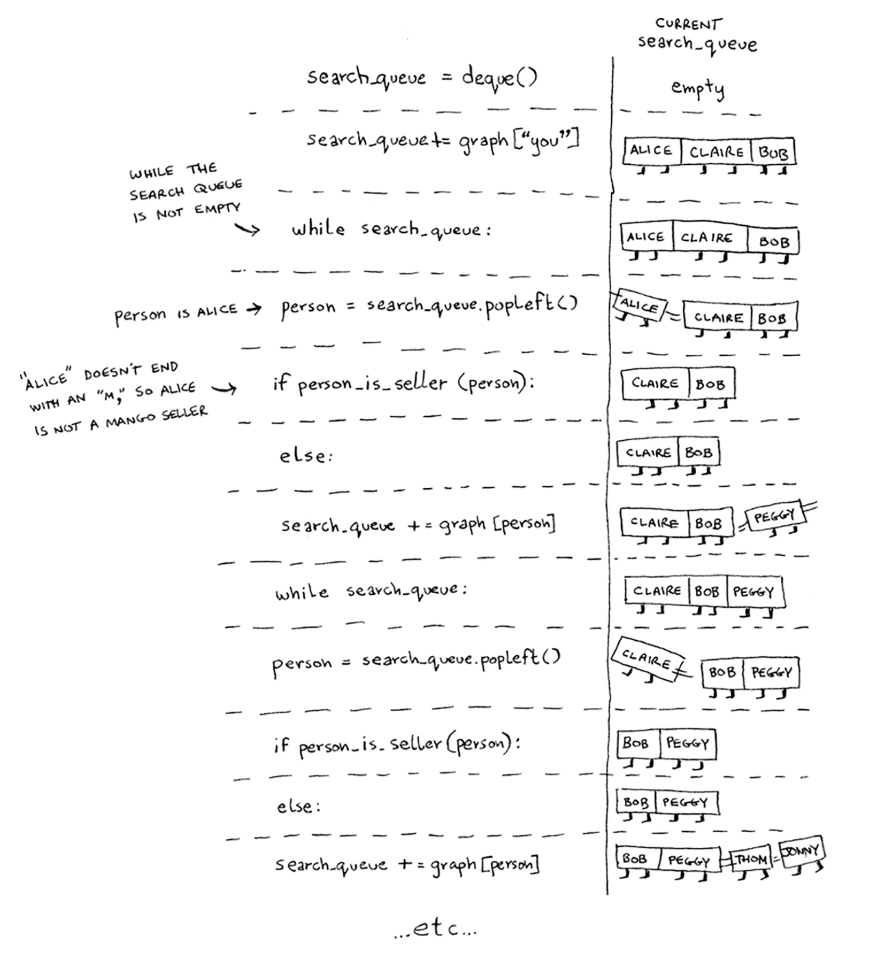 CURRENT
search_queue
search_queue = deque()
empty
search_queue += graph["you"]
ALICE CLAIRE BOB
WHILE THE
SEARCH QUEUE
IS NOT EMPTY
while search_queue:
ALICE CLAIRE BOB
PERSON IS ALICE
person = search_queue.popleft()
ALICE CLAIRE BOB
"ALICE" DOESN'T END
WITH AN "M," SO ALICE
IS NOT A MANGO SELLER
if person_is_seller (person):
CLAIRE BOB
else:
CLAIRE BOB
search_queue += graph [person]
CLAIRE BOB PEGGY
while search_queue:
CLAIRE BOB PEGGY
person = search_queue.popleft()
CLAIRE BOB PEGGY
if person_is_seller (person):
BOB PEGGY
else:
BOB PEGGY
search_queue += graph [person]
BOB PEGGY THOM JONNY
...etc...